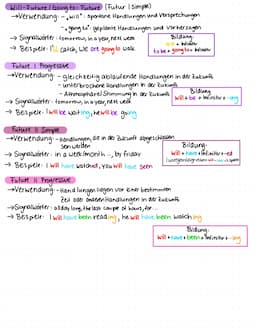 Will-Future / Going-to-Future (Futur I Simple)
→ Verwendung: - „will": spontane Handlungen und Versprechungen
- „going to": geplante Handlungen und Vorhersagen
→ Signalwörter: tomorrow, in a year, next week
→ Beispiele: I'll catch, We are going to walk
Bildung:
will + Infinitiv
to be + going to + Infinitiv
Future I Progressive
→ Verwendung: - gleichzeitig ablaufende Handlungen in der Zukunft
- unterbrochene Handlungen in der Zukunft
- Atmosphäre/Stimmung in der Zukunft
→ Signalwörter: tomorrow, in a year, next week
→ Beispiele: I will be waiting, he will be going
Bildung:
will + be + Infinitiv + -ing
Future II Simple
→ Verwendung: - Handlungen, die in der Zukunft abgeschlossen
sein werden
→ Signalwörter: in a week/month ..., by friday
→ Beispiele: I will have watched, you will have seen
Bildung:
will + have + Infinitiv + -ed
Future II Progressive
→ Verwendung: - Handlungen vor einer bestimmten
Zeit oder anderen Handlungen in der Zukunft
→ Signalwörter: all day long, the last couple of hours, for ...
→ Beispiele: I will have been reading, he will have been watching
Bildung:
will + have + been + Infinitiv + -ing